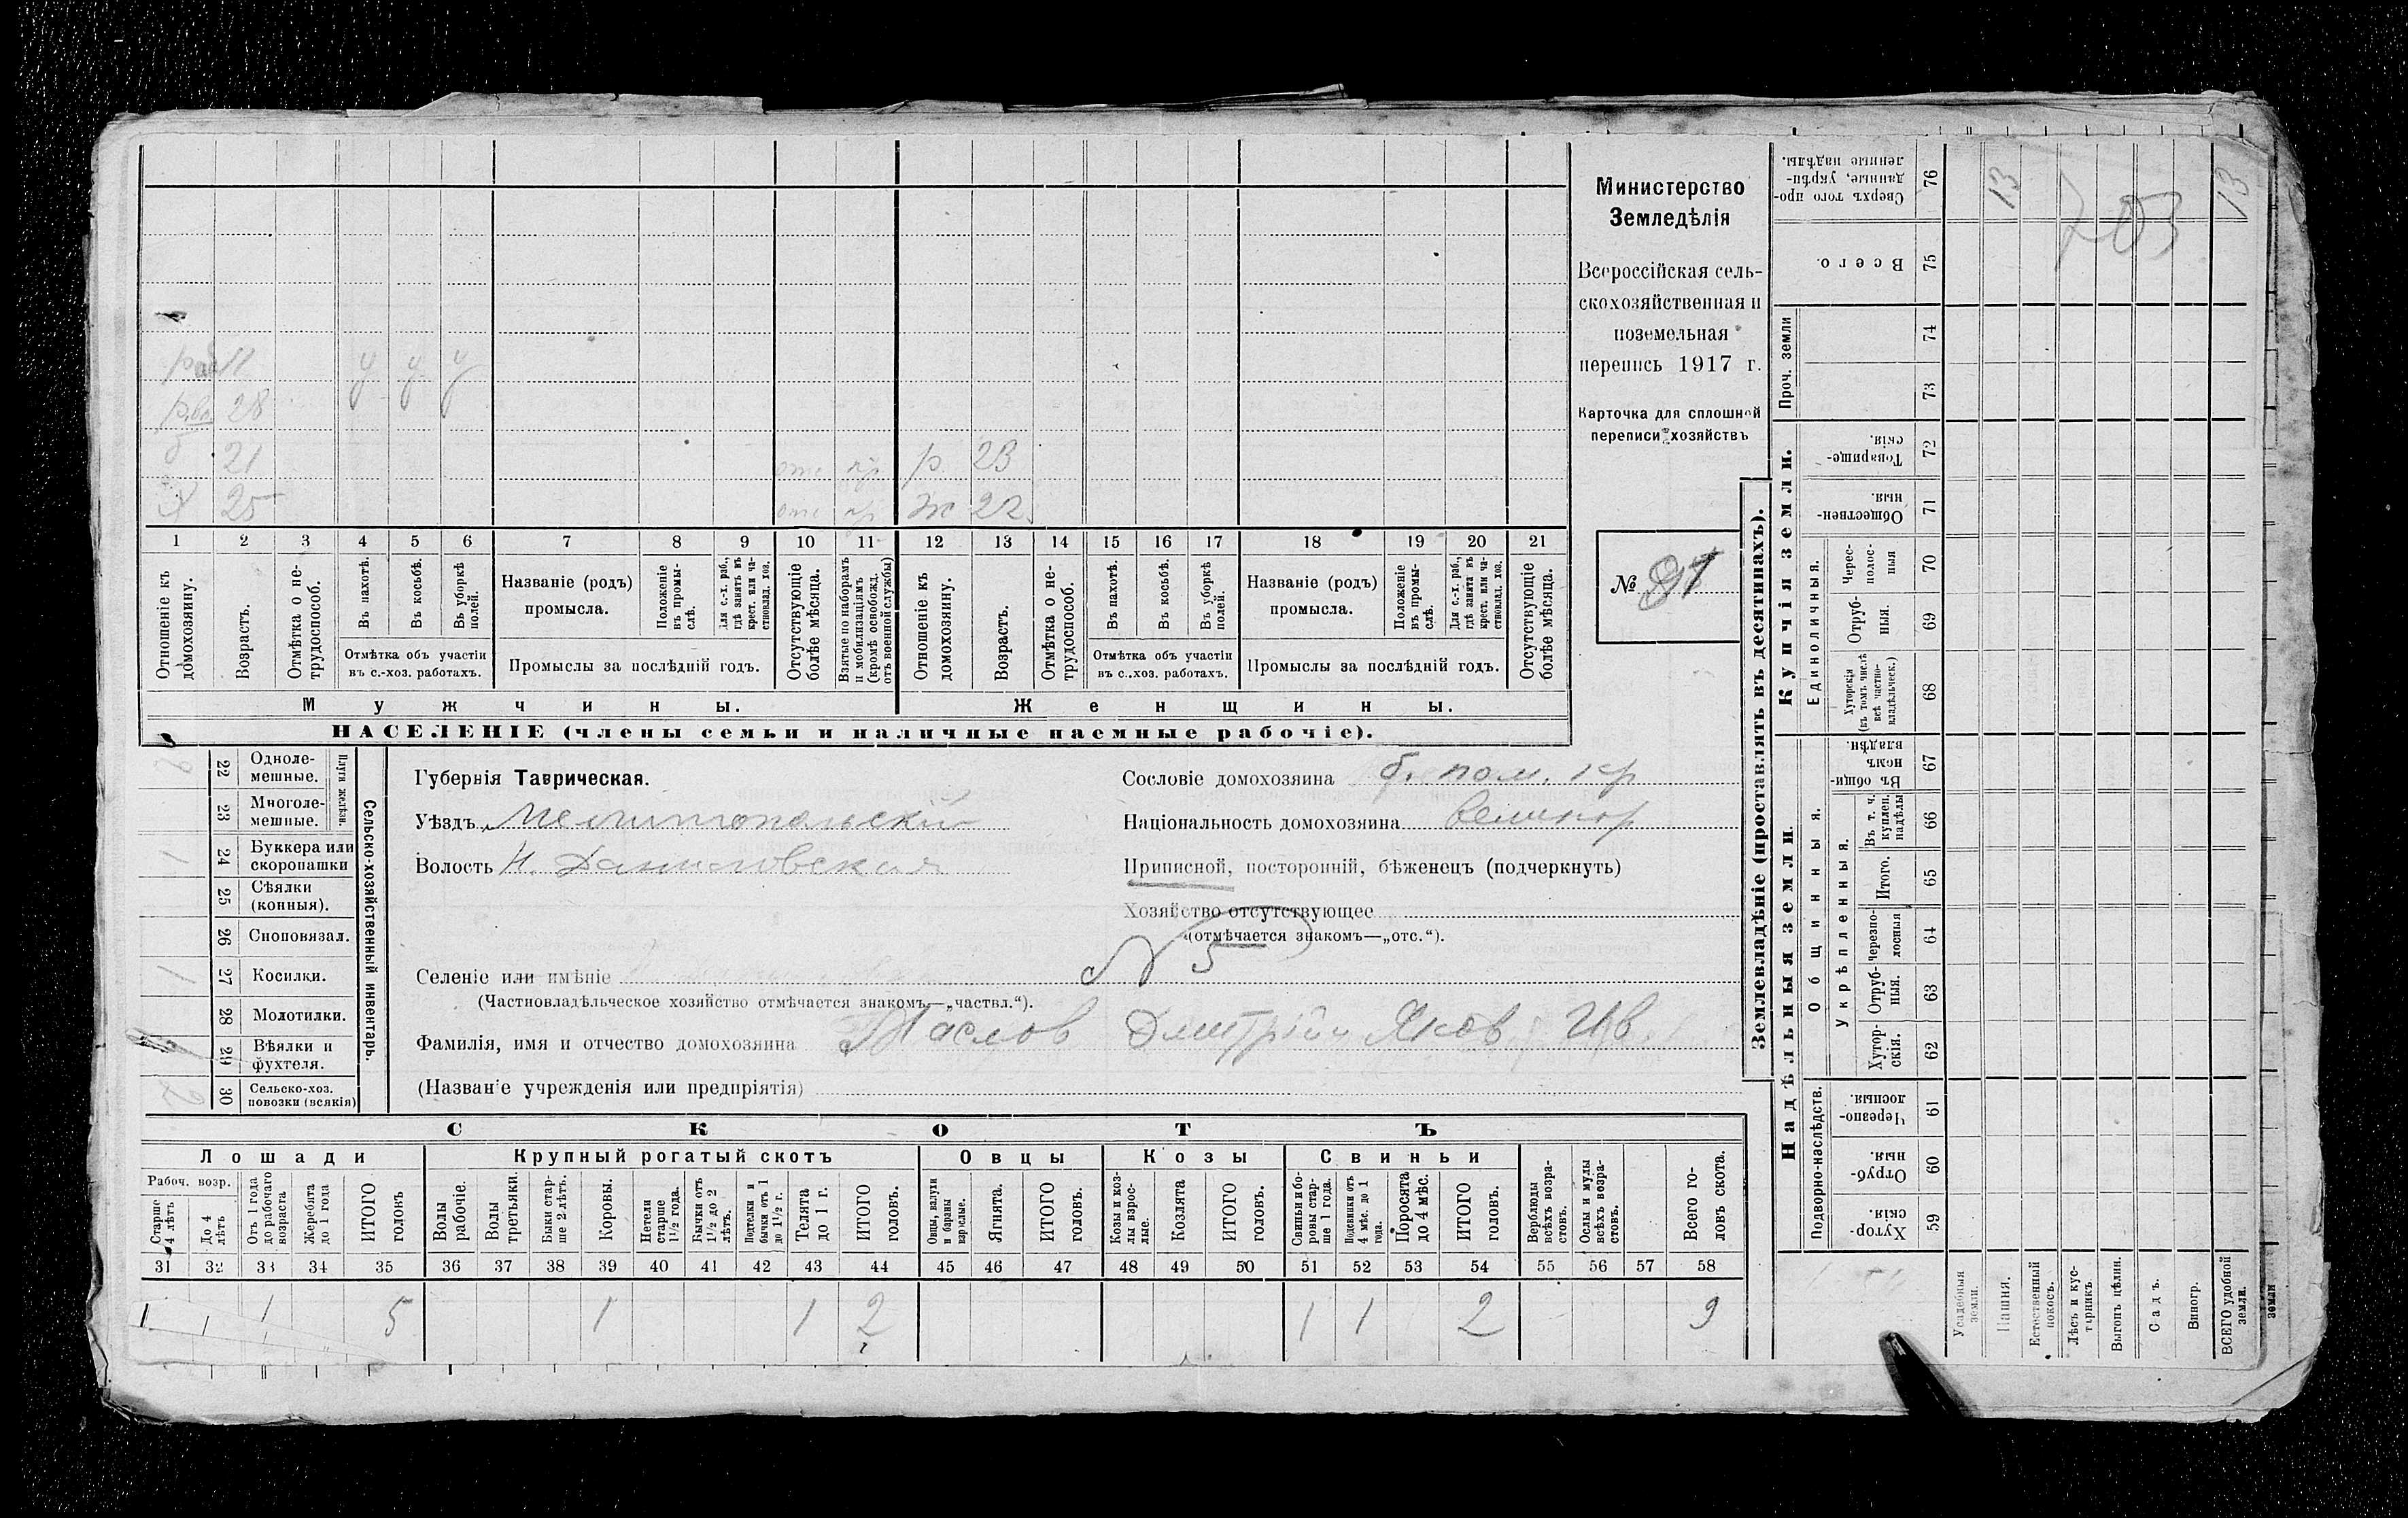 Министерство
Земледѣлія
Всероссійская сель-
скохозяйственная и
поземельная
перепись 1917 г.
Карточка для сплошной
переписи хозяйствъ
№ 91
28 у у у
21 отс пр р. 23
25 отс пр ж 22
1 2 3 4 5 6 7 8 9 10 11 12 13 14 15 16 17 18 19 20 21
Отношеніе къ домохозяину.
Возрастъ.
Отмѣтка о не-трудоспособ.
Въ пахотѣ.
Въ косьбѣ.
Въ уборкѣ полей.
Отмѣтка объ участіи
въ с.-хоз. работахъ.
Названіе (родъ)
промысла.
Положеніе въ промы-слѣ.
Для с.-х. раб., гдѣ занятъ въ крест. или ча-стновлад. хоз.
Промыслы за послѣдній годъ.
Отсутствующіе болѣе мѣсяца.
Взятые по наборамъ и мобилизаціямъ (кромѣ освобожд. отъ военной службы)
Отношеніе къ домохозяину.
Возрастъ.
Отмѣтка о не-трудоспособ.
Въ пахотѣ.
Въ косьбѣ.
Въ уборкѣ полей.
Отмѣтка объ участіи
въ с.-хоз. работахъ.
Названіе (родъ)
промысла.
Положеніе въ промы-слѣ.
Для с.-х. раб., гдѣ занята въ крест. или ча-стновлад. хоз.
Промыслы за послѣдній годъ.
Отсутствующіе болѣе мѣсяца.
Мужчины. Женщины.
НАСЕЛЕНІЕ (члены семьи и наличные наемные рабочіе).
Сельско-хозяйственный инвентарь.
Плуги желѣзн.
22 Одноле-мешные.
23 Многоле-мешные.
1 24 Буккера или скоропашки
25 Сѣялки (конныя).
26 Сноповязал.
1 27 Косилки.
28 Молотилки.
29 Вѣялки и фухтеля.
2 30 Сельско-хоз. повозки (всякія)
Губернія Таврическая.
Уѣздъ Мелитопольскій
Волость Н. Даниловская
Селеніе или имѣніе
(Частновладѣльческое хозяйство отмѣчается знакомъ—„частвл.“).
Фамилія, имя и отчество домохозяина Маслов Дмитрій Яков. Ив.
(Названіе учрежденія или предпріятія)
Сословіе домохозяина б. пом. кр
Національность домохозяина великор
Приписной, посторонній, бѣженец (подчеркнуть)
Хозяйство отсутствующее
(отмѣчается знакомъ—„отс.“).
N 5
СКОТЪ
Лошади Крупный рогатый скотъ Овцы Козы Свиньи
Рабоч. возр.
Старше 4 лѣтъ
До 4 лѣтъ
Отъ 1 года до рабочаго возраста
Жеребята до 1 года
ИТОГО головъ
Волы рабочіе.
Волы третьяки.
Быки стар-ше 2 лѣтъ.
Коровы.
Нетели старше 1½ года.
Бычки отъ 1½ до 2 лѣтъ.
Подтелки и бычки отъ 1 до 1½ г.
Телята до 1 г.
ИТОГО головъ.
Овцы, валухи и бараны взрослые.
Ягнята.
ИТОГО головъ.
Козы и коз-лы взрос-лые.
Козлята
ИТОГО головъ.
Свиньи и бо-ровы стар-ше 1 года.
Подсвинки отъ 4 мѣс. до 1 года.
Поросята до 4 мѣс.
ИТОГО головъ.
Верблюды всѣхъ возра-стовъ.
Ослы и мулы всѣхъ возра-стовъ.
Всего го-ловъ скота.
31 32 33 34 35 36 37 38 39 40 41 42 43 44 45 46 47 48 49 50 51 52 53 54 55 56 57 58
1 1 5 1 1 2 1 1 2 9
Землевладѣніе (проставлять въ десятинахъ).
Надѣльныя земли. Купчія земли.
Подворно-наслѣдств.
Общинныя.
Укрѣпленныя.
Единоличныя.
Проч. земли
Хутор-скія. 59
Отруб-ныя. 60
Черезпо-лосныя 61
Хутор-скія. 62
Отруб-ныя. 63
Черезпо-лосныя 64
Итого. 65
Въ т. ч. куплен. надѣлы 66
Въ общи-номъ владѣн. 67
Хуторскія (въ томъ числѣ всѣ частно-владѣльческ.) 68
Отруб-ныя. 69
Черес-полос-ныя 70
Обществен-ныя. 71
Товарище-скія. 72
73
74
Всего. 75
Сверхъ того про-данные, укрѣп-ленные надѣлы. 76
13 703 13
Усадебныя земли.
Пашня.
Естественный покосъ.
Лѣсъ и кус-тарникъ
Выгонъ цѣлин.
Садъ.
Виногр.
ВСЕГО удобной земли.
земли